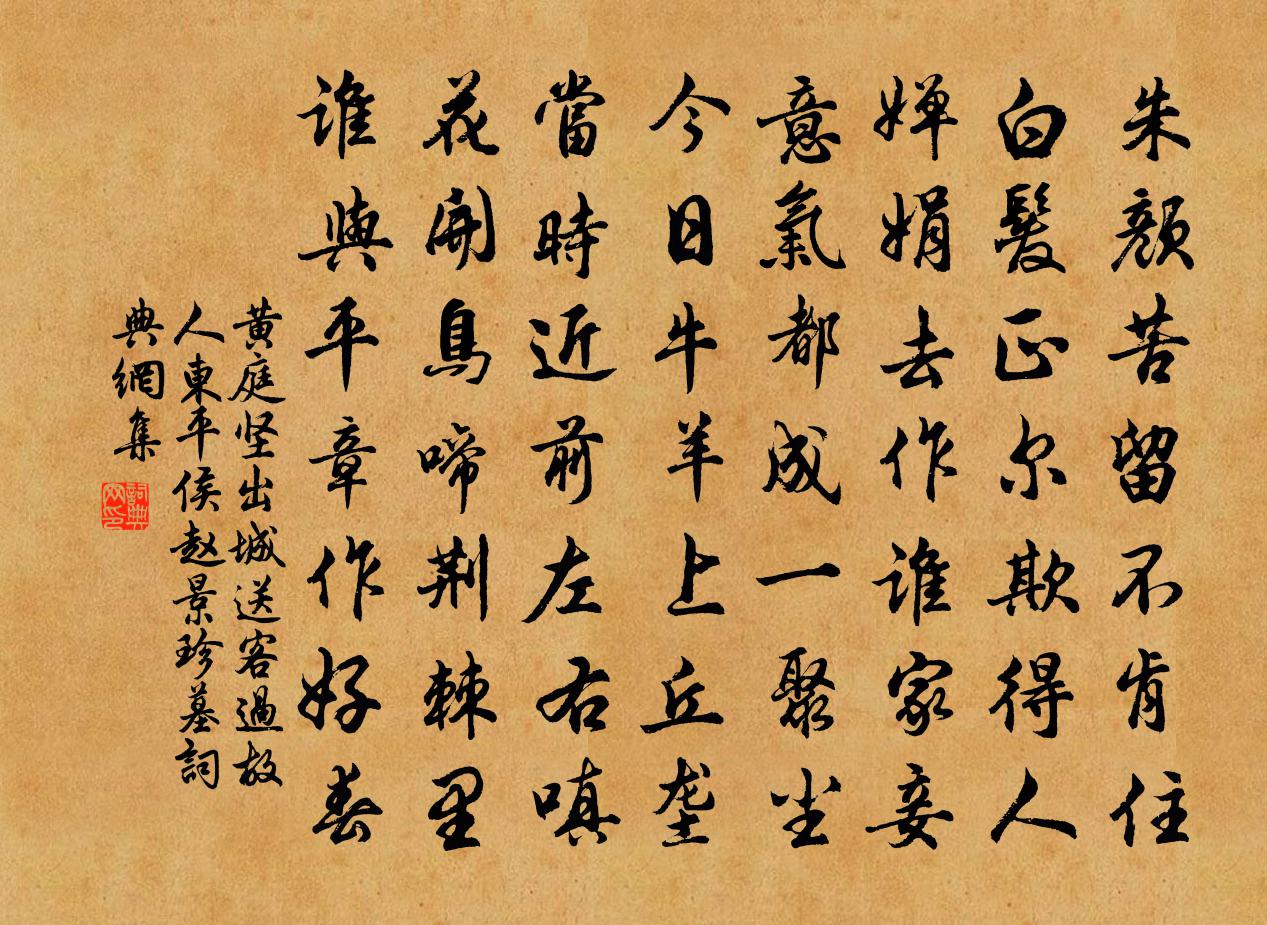 朱顔苦留不肯住
白髮正尔欺得人
嬋娟去作誰家妾
意氣都成一聚尘
今日牛羊上丘垄
當時近前左右嗔
花開鳥啼荆棘里
誰與平章作好春
黄庭坚出城送客過故
人東平侯赵景珍墓詞
典網集
詞典
网印